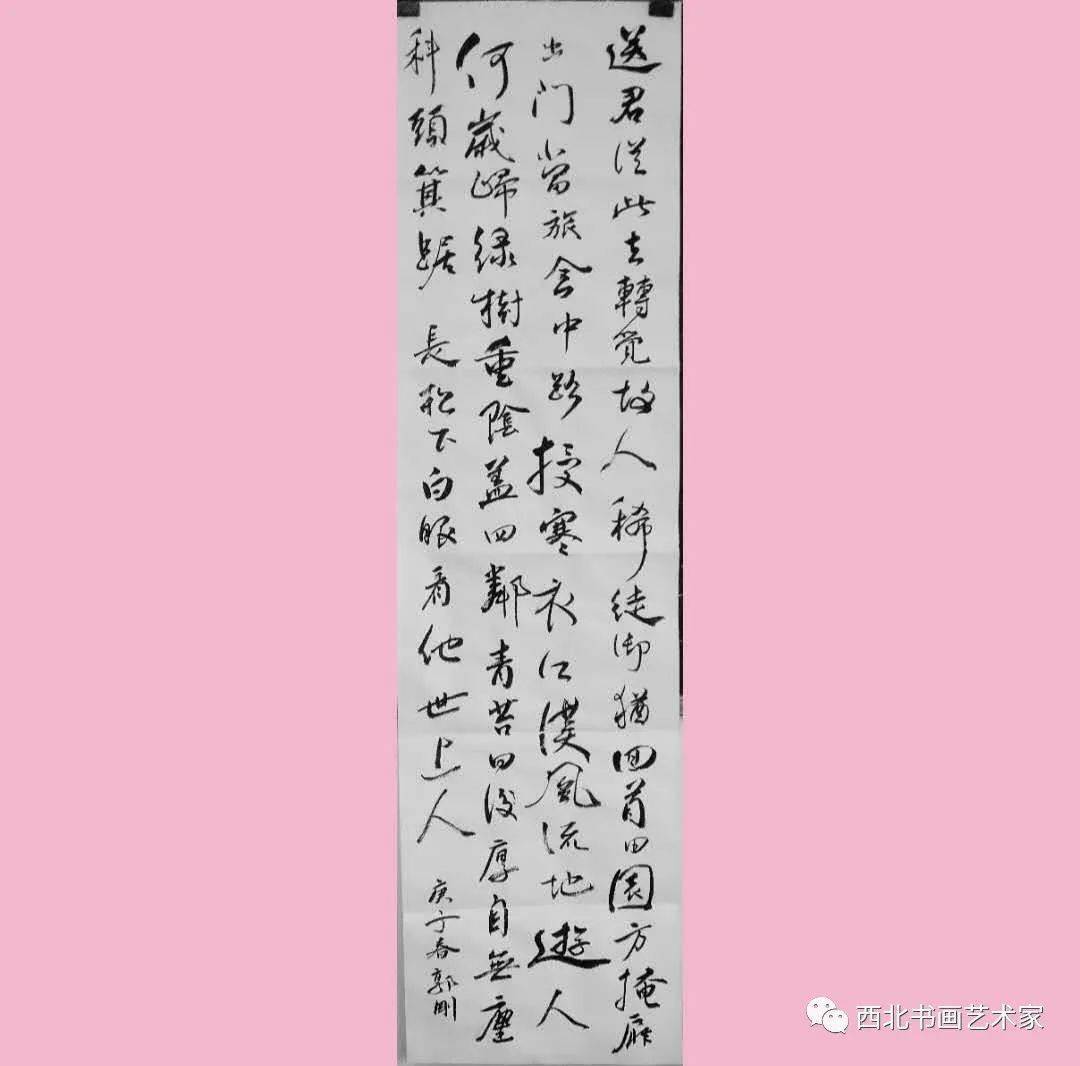 送君從此去轉覺故人稀徒御猶回首田園方掩扉
出门當旅食中路授寒衣江漢風流地遊人
何歲歸緑樹重陰盖四鄰青苔日後厚自無塵
科頭箕踞長松下白眼看他世上人
庚子春郭剛
西北书画艺术家